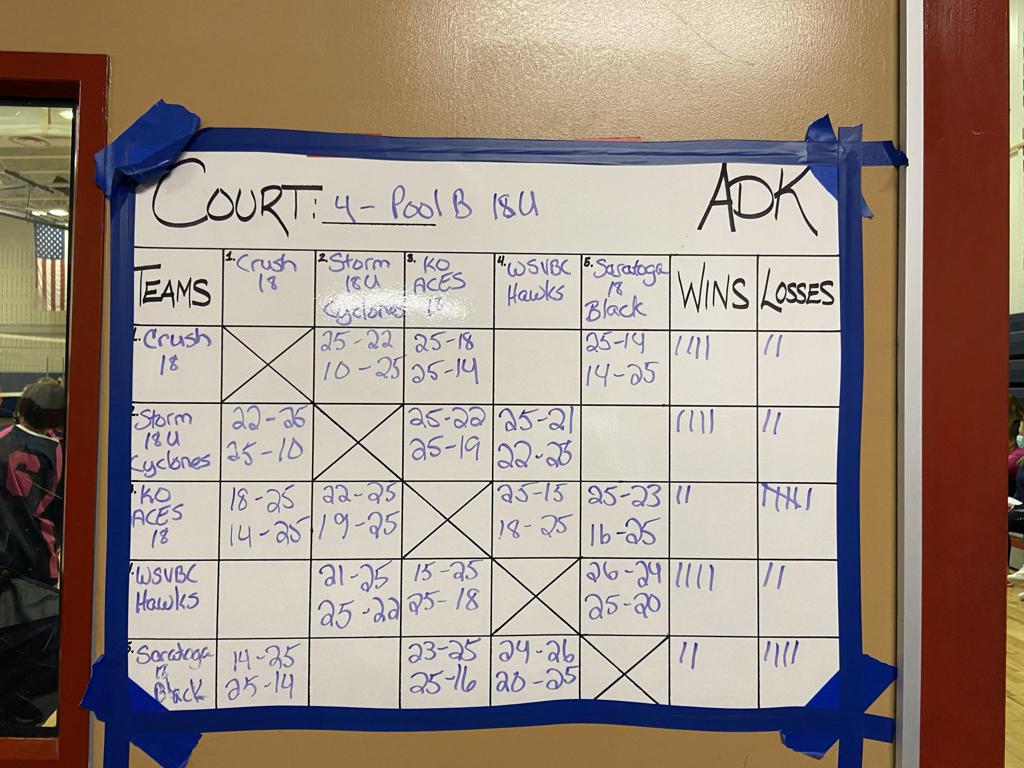 COURT: 4 - Pool B 18U ADK
TEAMS
1. Crush
18
2. Storm
18U
Cyclones
3. KO
ACES
18
4. WSVBC
Hawks
5. Saratoga
18
Black
WINS
LOSSES
1. Crush
18
25-22
10-25
25-18
25-14
25-14
14-25
IIII
II
2. Storm
18U
Cyclones
22-25
25-10
25-22
25-19
25-21
22-25
IIII
II
KO
ACES
18
18-25
14-25
22-25
19-25
25-15
18-25
25-23
16-25
II
WSVBC
Hawks
21-25
25-22
15-25
25-18
26-24
25-20
IIII
II
5. Saratoga
18
Black
14-25
25-14
23-25
25-16
24-26
20-25
II
IIII